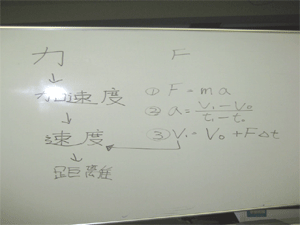 力 F
↓
加速度 ① F = ma
↓ ② a = (V₁ - V₀)/(t₁ - t₀)
速度 ③ V₁ = V₀ + FΔt
↓
距離